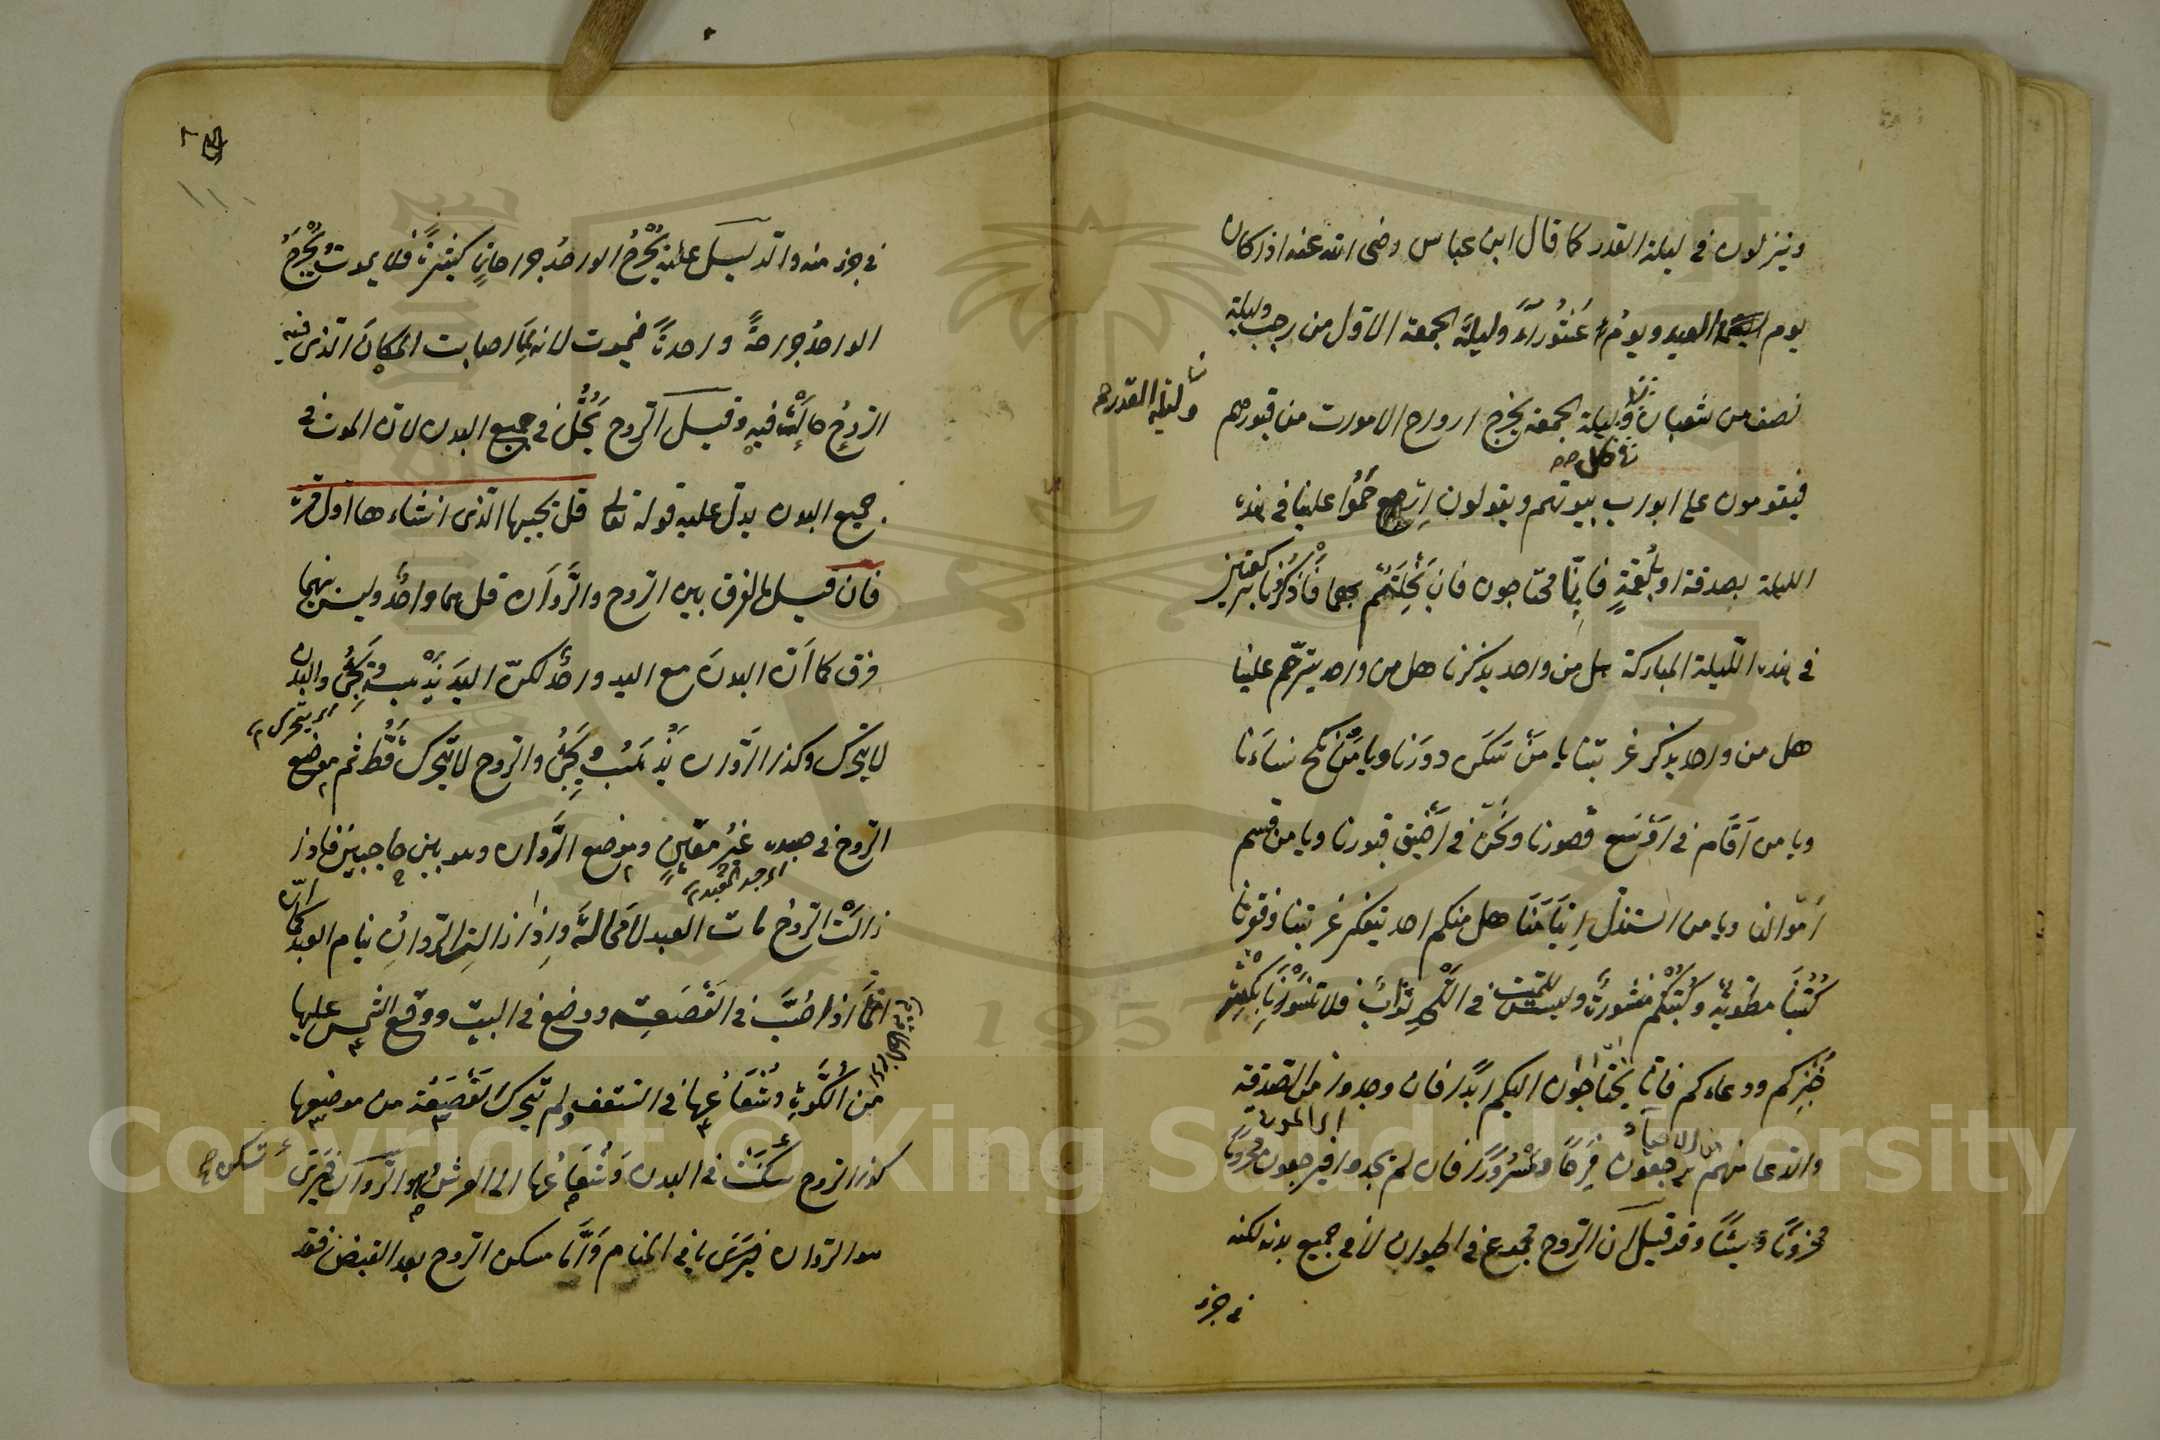 وينزلون في ليلة القدر كما قال ابن عباس رضى الله عنه اذا كان
يوم العيد ويوم عشوراء وليلة الجمعة الاول من رجب وليلة
نصف من شعبان وليلة الجمعة يخرج ارواح الاموات من قبورهم
وليلة القدر
فيقومون على ابواب بيوتهم ويقولون ارحموا علينا في هذه
الليلة بصدقة او بلقمة فانا محتاجون فان بخلتم بها فاذكرنا بركعتين
في هذه الليلة المباركة هل من واحد يذكرنا هل من واحد يترحم علينا
هل من واحد يذكر غربتنا يا من سكن دورنا ويا من نكح نساءنا
ويا من اقام في اوسع قصورنا ونحن في اضيق قبورنا ويا من قسم
اموالنا ويا من استذل ايتامنا هل منكم احد يتفكر غربتنا وفقرنا
كتبنا مطوية وكتبكم منشورة وليس للميت في اللحد ثواب فلا تنسونا بكسرة
خبزكم ودعاءكم فانا محتاجون اليكم ابدا فان وجدوا من الصدقة
اي الموت
من الاحياء
والدعا منهم يرجعون فرحا ومسرورا فان لم يجدوا فيرجعون محروما
محزونا وقد قيل ان الروح مجمع في الحيوان لا في جميع بدنه لكنه
في جزء
في جزء منه والدليل عليه يجرح الواحد جراحات كثيرة فلا يموت ويجرح
الواحد جراحة واحدة فيموت لانه لما اصابت المكان الذي فيه
الروح حالت فيه وقيل الروح يحل في جميع البدن لان الموت في
جميع البدن يدل عليه قوله تعالى قل يحييها الذى انشاءها اول مرة
فان قيل ما لفرق بين الروح والروان قل هما واحد وليس بينهما
فرق كما ان البدن مع اليد واحد لكن اليد يذهب ويجئ والبدن
لا يتحرك وكذا الروان يذهب ويجئ والروح لا يتحرك قط ثم موضع
اى يتحرك
الروح في جسد غير معين وموضع الروان وهو بين حاجبين فاذا
زالت الروح مات العبد لا محالة واذا زالت الروان ينام العبد كما ان
الماء اذا صب في القصعة ووضع في البيت ووقع الشمس عليها
من الكوة وشعاعها في السقف ولم تتحرك القصعة من موضعها
كذا الروح سكنت في البدن وشعاعها الى العرش وهو الروان فيرى
تسكن
هو الروان فيرى ما في المنام واما مسكن الروح بعد القبض فقد
Copyright © King Saud University
1957